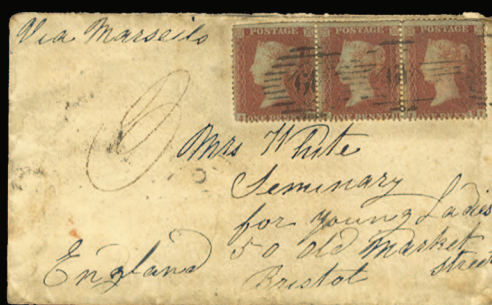 Via Marseils
POSTAGE POSTAGE POSTAGE
6
Mrs White
Seminary
for young Ladies
50 old Market
street
England
Bristol